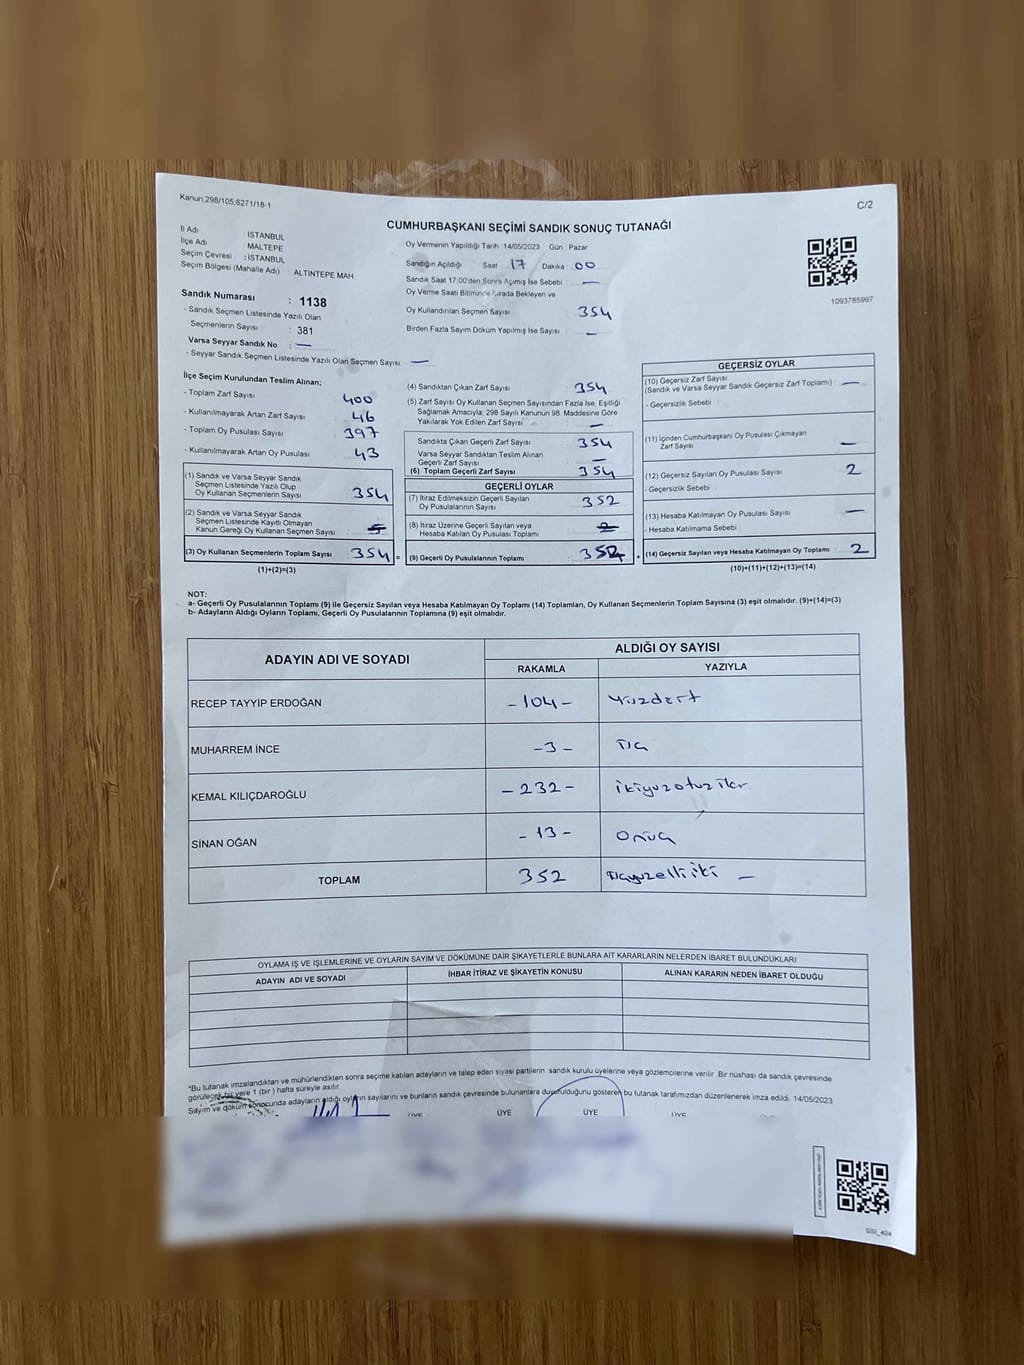 Kanun,298/105,6271/18-1
C/2
CUMHURBAŞKANI SEÇİMİ SANDIK SONUÇ TUTANAĞI
İl Adı : İSTANBUL
İlçe Adı : MALTEPE
Seçim Çevresi : İSTANBUL
Seçim Bölgesi (Mahalle Adı) : ALTINTEPE MAH.
Sandık Numarası : 1138
- Sandık Seçmen Listesinde Yazılı Olan
Seçmenlerin Sayısı : 381
Varsa Seyyar Sandık No : —
- Seyyar Sandık Seçmen Listesinde Yazılı Olan Seçmen Sayısı: —
Oy Vermenin Yapıldığı Tarih : 14/05/2023 Gün : Pazar
Sandığın Açıldığı Saat : 17 Dakika : 00
Sandık Saat 17:00'den Sonra Açımış İse Sebebi : —
Oy Verme Saati Bitiminde Sırada Bekleyen ve
Oy Kullandırılan Seçmen Sayısı : 354
Birden Fazla Sayım Döküm Yapılmış İse Sayısı : —
1093785997
İlçe Seçim Kurulundan Teslim Alınan;
- Toplam Zarf Sayısı : 400
- Kullanılmayarak Artan Zarf Sayısı : 46
- Toplam Oy Pusulası Sayısı : 397
- Kullanılmayarak Artan Oy Pusulası : 43
(1) Sandık ve Varsa Seyyar Sandık
Seçmen Listesinde Yazılı Olup
Oy Kullanan Seçmenlerin Sayısı : 354
(2) Sandık ve Varsa Seyyar Sandık
Seçmen Listesinde Kayıtlı Olmayan
Kanun Gereği Oy Kullanan Seçmen Sayısı :
(3) Oy Kullanan Seçmenlerin Toplam Sayısı : 354 =
(1)+(2)=(3)
(4) Sandıktan Çıkan Zarf Sayısı : 354
(5) Zarf Sayısı Oy Kullanan Seçmen Sayısından Fazla İse, Eşitliği
Sağlamak Amacıyla; 298 Sayılı Kanunun 98. Maddesine Göre
Yakılarak Yok Edilen Zarf Sayısı : —
Sandıkta Çıkan Geçerli Zarf Sayısı : 354
Varsa Seyyar Sandıktan Teslim Alınan
Geçerli Zarf Sayısı : —
(6) Toplam Geçerli Zarf Sayısı : 354
GEÇERLİ OYLAR
(7) İtiraz Edilmeksizin Geçerli Sayılan
Oy Pusulalarının Sayısı : 352
(8) İtiraz Üzerine Geçerli Sayılan veya
Hesaba Katılan Oy Pusulası Toplamı :
(9) Geçerli Oy Pusulalarının Toplamı : 352 +
GEÇERSİZ OYLAR
(10) Geçersiz Zarf Sayısı
(Sandık ve Varsa Seyyar Sandık Geçersiz Zarf Toplamı) : —
- Geçersizlik Sebebi :
(11) İçinden Cumhurbaşkanı Oy Pusulası Çıkmayan
Zarf Sayısı : —
(12) Geçersiz Sayılan Oy Pusulası Sayısı : 2
- Geçersizlik Sebebi :
(13) Hesaba Katılmayan Oy Pusulası Sayısı : —
- Hesaba Katılmama Sebebi :
(14) Geçersiz Sayılan veya Hesaba Katılmayan Oy Toplamı : 2
(10)+(11)+(12)+(13)=(14)
NOT:
a- Geçerli Oy Pusulalarının Toplamı (9) ile Geçersiz Sayılan veya Hesaba Katılmayan Oy Toplamı (14) Toplamları, Oy Kullanan Seçmenlerin Toplam Sayısına (3) eşit olmalıdır. (9)+(14)=(3)
b- Adayların Aldığı Oyların Toplamı, Geçerli Oy Pusulalarının Toplamına (9) eşit olmalıdır.
ADAYIN ADI VE SOYADI ALDIĞI OY SAYISI
RAKAMLA YAZIYLA
RECEP TAYYİP ERDOĞAN -104- Yüzdört
MUHARREM İNCE -3- Üç
KEMAL KILIÇDAROĞLU -232- ikiyüzotuziki
SİNAN OĞAN -13- Onüç
TOPLAM 352 Üçyüzelliiki —
OYLAMA İŞ VE İŞLEMLERİNE VE OYLARIN SAYIM VE DÖKÜMÜNE DAİR ŞİKAYETLERLE BUNLARA AİT KARARLARIN NELERDEN İBARET BULUNDUKLARI
ADAYIN ADI VE SOYADI İHBAR İTİRAZ VE ŞİKAYETİN KONUSU ALINAN KARARIN NEDEN İBARET OLDUĞU
*Bu tutanak imzalandıktan ve mühürlendikten sonra seçime katılan adayların ve talep eden siyasi partilerin sandık kurulu üyelerine veya gözlemcilerine verilir. Bir nüshası da sandık çevresinde
görülecek bir yere 1 (bir) hafta süreyle asılır.
Sayım ve döküm sonucunda adayların aldığı oyların sayılarını ve bunların sandık çevresinde bulunanlara duyurulduğunu gösteren bu tutanak tarafımızdan düzenlenerek imza edildi. 14/05/2023
ÜYE ÜYE ÜYE ÜYE